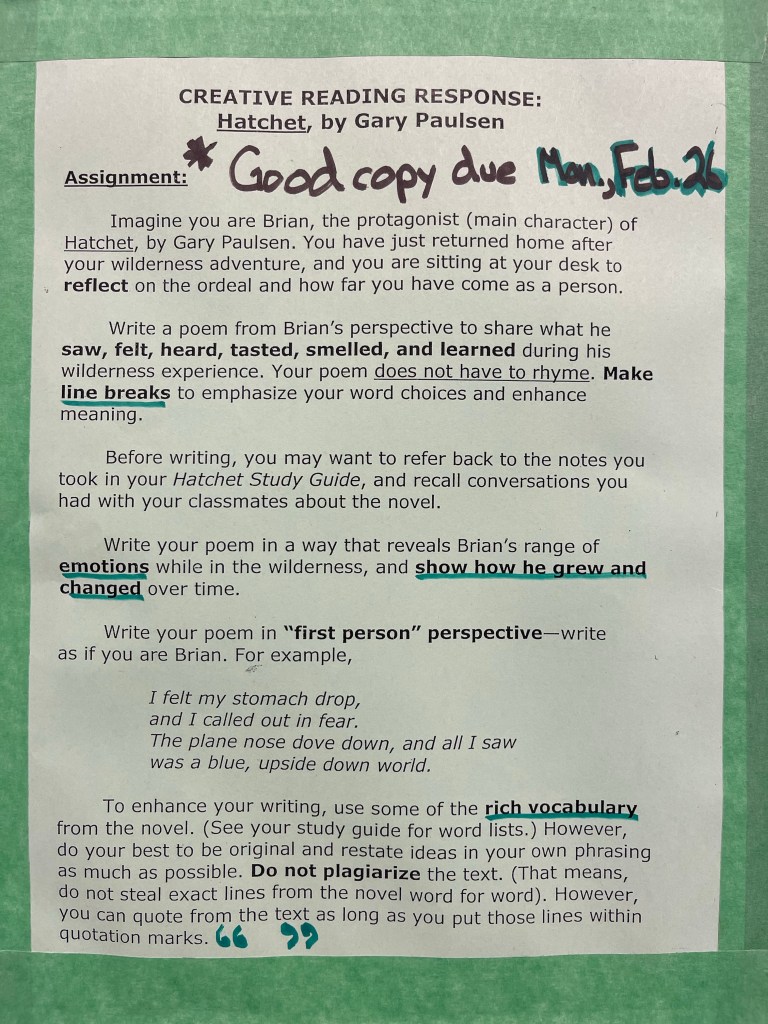 CREATIVE READING RESPONSE:
Hatchet, by Gary Paulsen
Assignment: * Good copy due Mon., Feb. 26
Imagine you are Brian, the protagonist (main character) of
Hatchet, by Gary Paulsen. You have just returned home after
your wilderness adventure, and you are sitting at your desk to
reflect on the ordeal and how far you have come as a person.
Write a poem from Brian's perspective to share what he
saw, felt, heard, tasted, smelled, and learned during his
wilderness experience. Your poem does not have to rhyme. Make
line breaks to emphasize your word choices and enhance
meaning.
Before writing, you may want to refer back to the notes you
took in your Hatchet Study Guide, and recall conversations you
had with your classmates about the novel.
Write your poem in a way that reveals Brian's range of
emotions while in the wilderness, and show how he grew and
changed over time.
Write your poem in "first person" perspective—write
as if you are Brian. For example,
I felt my stomach drop,
and I called out in fear.
The plane nose dove down, and all I saw
was a blue, upside down world.
To enhance your writing, use some of the rich vocabulary
from the novel. (See your study guide for word lists.) However,
do your best to be original and restate ideas in your own phrasing
as much as possible. Do not plagiarize the text. (That means,
do not steal exact lines from the novel word for word). However,
you can quote from the text as long as you put those lines within
quotation marks. “ ”